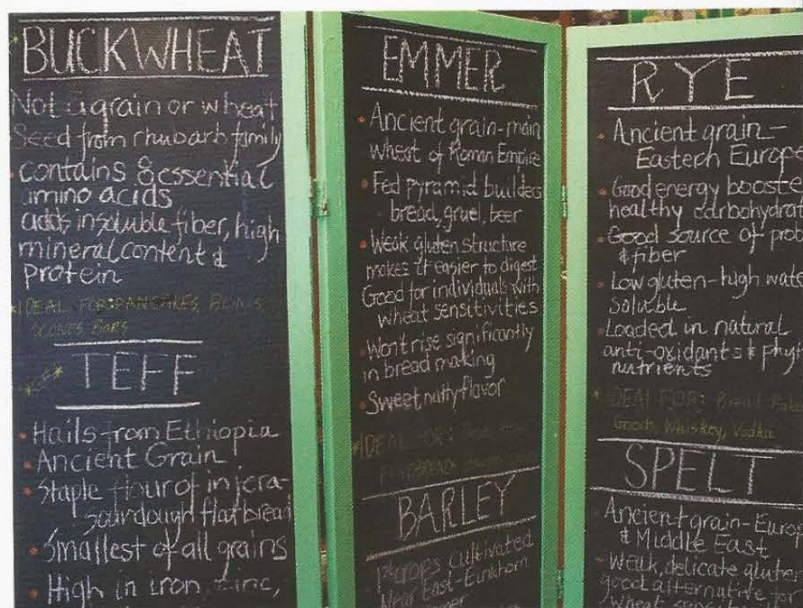 BUCKWHEAT
Not a grain or wheat
Seed from rhubarb family
• contains 8 essential
amino acids
adds insoluble fiber, high
mineral content &
protein
*IDEAL FOR: PANCAKES, BLINIS,
SCONES, BARS
TEFF
• Hails from Ethiopia
• Ancient Grain
• Staple flour of injera-
sourdough flatbread
• Smallest of all grains
• High in iron, zinc,
EMMER
• Ancient grain-main
wheat of Roman Empire
• Fed pyramid builders
bread, gruel, beer
• Weak gluten structure
makes it easier to digest
Good for individuals with
wheat sensitivities
• Wont rise significantly
in bread making
• Sweet nutty flavor
*IDEAL FOR:
FLATBREADS
BARLEY
1st crops cultivated
Near East-Einkorn
RYE
• Ancient grain-
Eastern Europe
• Good energy booste
healthy carbohydrat
• Good source of prot
& fiber
• Low gluten-high wate
soluble
• Loaded in natural
anti-oxidants & phyt
nutrients
*IDEAL FOR: Bread, Bake
Goods, Whiskey, Vodka
SPELT
Ancient grain-Europ
& Middle East
• Weak, delicate gluten
good alternative for
wheat